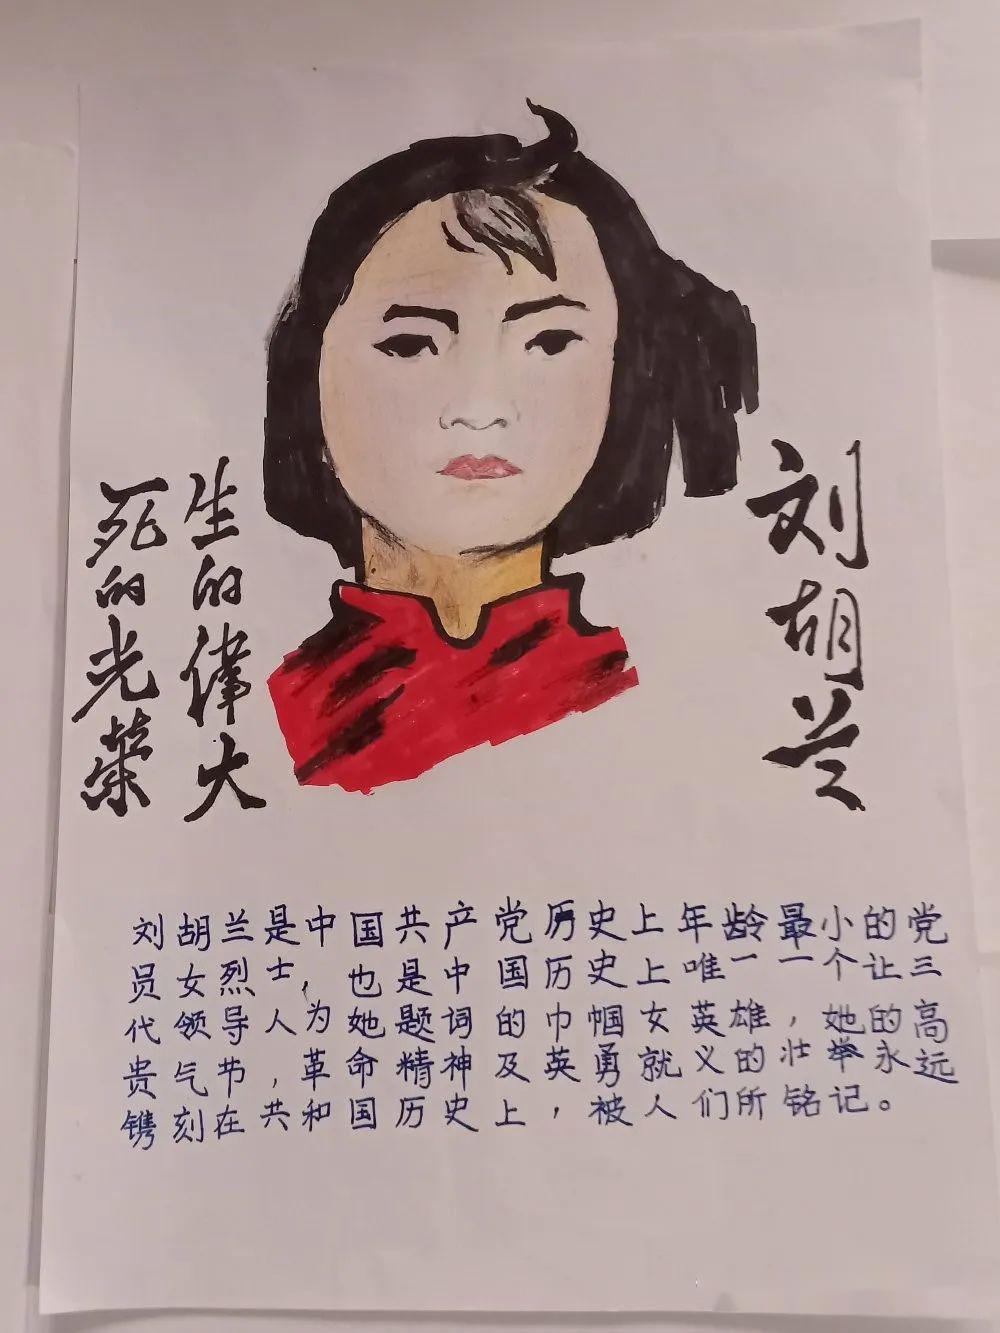 刘胡兰
生的偉大
死的光榮
刘胡兰是中国共产党历史上年龄最小的党
员女烈士，也是中国历史上唯一一个让三
代领导人为她题词的巾帼女英雄，她的高
贵气节，革命精神及英勇就义的壮举永远
镌刻在共和国历史上，被人们所铭记。